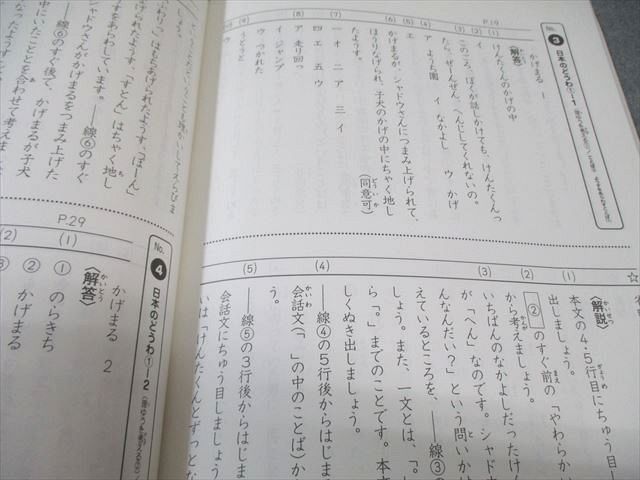 No. 3 日本のどうわ①-1
P.19
かげまる 1
〈解答〉
(1) けんたくんのかげの中
(2) イ
(3) このごろ、ぼくが話しかけても、けんたくんっ
たら、ぜーんぜん、へんじしてくれないの。
(4) ア ようち園 イ なかよし ウ かげ
(5) エ
(6) かげまるが、シャドウさんにつまみ上げられて、
ほうりなげられ、子犬のかげの中にちゃく地し
たようす。(同意可)
(7) 一 オ 二 ア 三 イ
四 エ 五 ウ
(8) ア 走り回っ
イ ジャンプ
ウ つかれた
(9) うとうと
☆
〈解説〉
(1) 本文の4・5行目にちゅう目し
出しましょう。
(2) ②のすぐ前の「やわらか
から考えましょう。
(3) いちばんのなかよしだったけん
が「へん」なのです。シャド
んなんだい?」という問いか
えているところを、――線③の
しょう。また、一文とは、「。」
ら「。」までのことです。本
しくぬき出しましょう。
(4) ――線④の5行後からはじま
会話文(「 」の中のことば)か
う。
(5) ――線⑤の3行後からはじま
会話文にちゅう目しましょう
いは「けんたくんとずっとな
られたようす、「すとん」はちゃく地し
すをあらわしています。――線⑥のすぐ
シャドウさんがかげまるをつまみ上げた
――線⑥のすぐ後で、かげまるが子犬
No. 4 日本のどうわ①-2
P.29
かげまる 2
〈解答〉
(1) ① のらきち
② かげまる
(2) ③